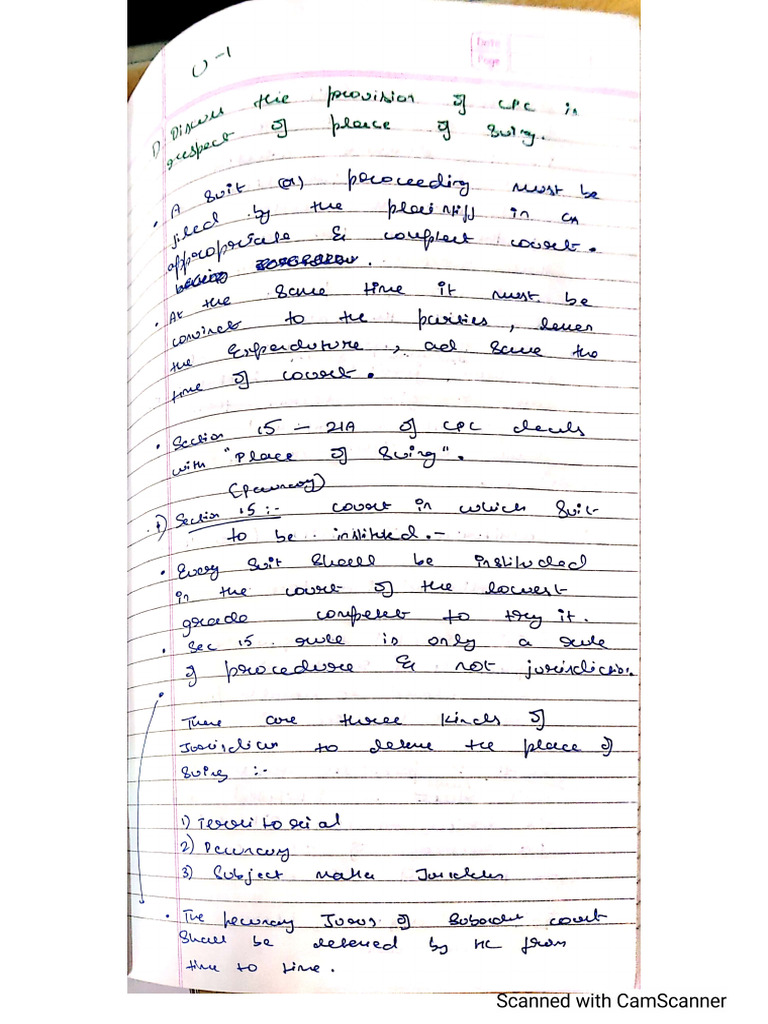 U-1
Date
Page
1) Discuss the provision of CPC in
respect of place of suing.
• A suit (or) proceeding must be
filed by the plaintiff in an
appropriate & competent court.
• At the same time it must be
to the parties,
the Expenduture, and save the
time of court.
• Section 15 - 21A of CPC deals
with "Place of Suing".
(pecunary)
1) Section 15:- court in which suit
to be instituted.-
• Every suit shall be instituded
in the court of the lowest
grade competent to try it.
• Sec 15 rule is only a rule
of procedure & not jurisdiction.
There are three kinds of
to the place of
suing :-
1) Territorial
2) Pecunary
3) Subject matter
• The pecunary of court
shall be by HC from
time to time.
Scanned with CamScanner